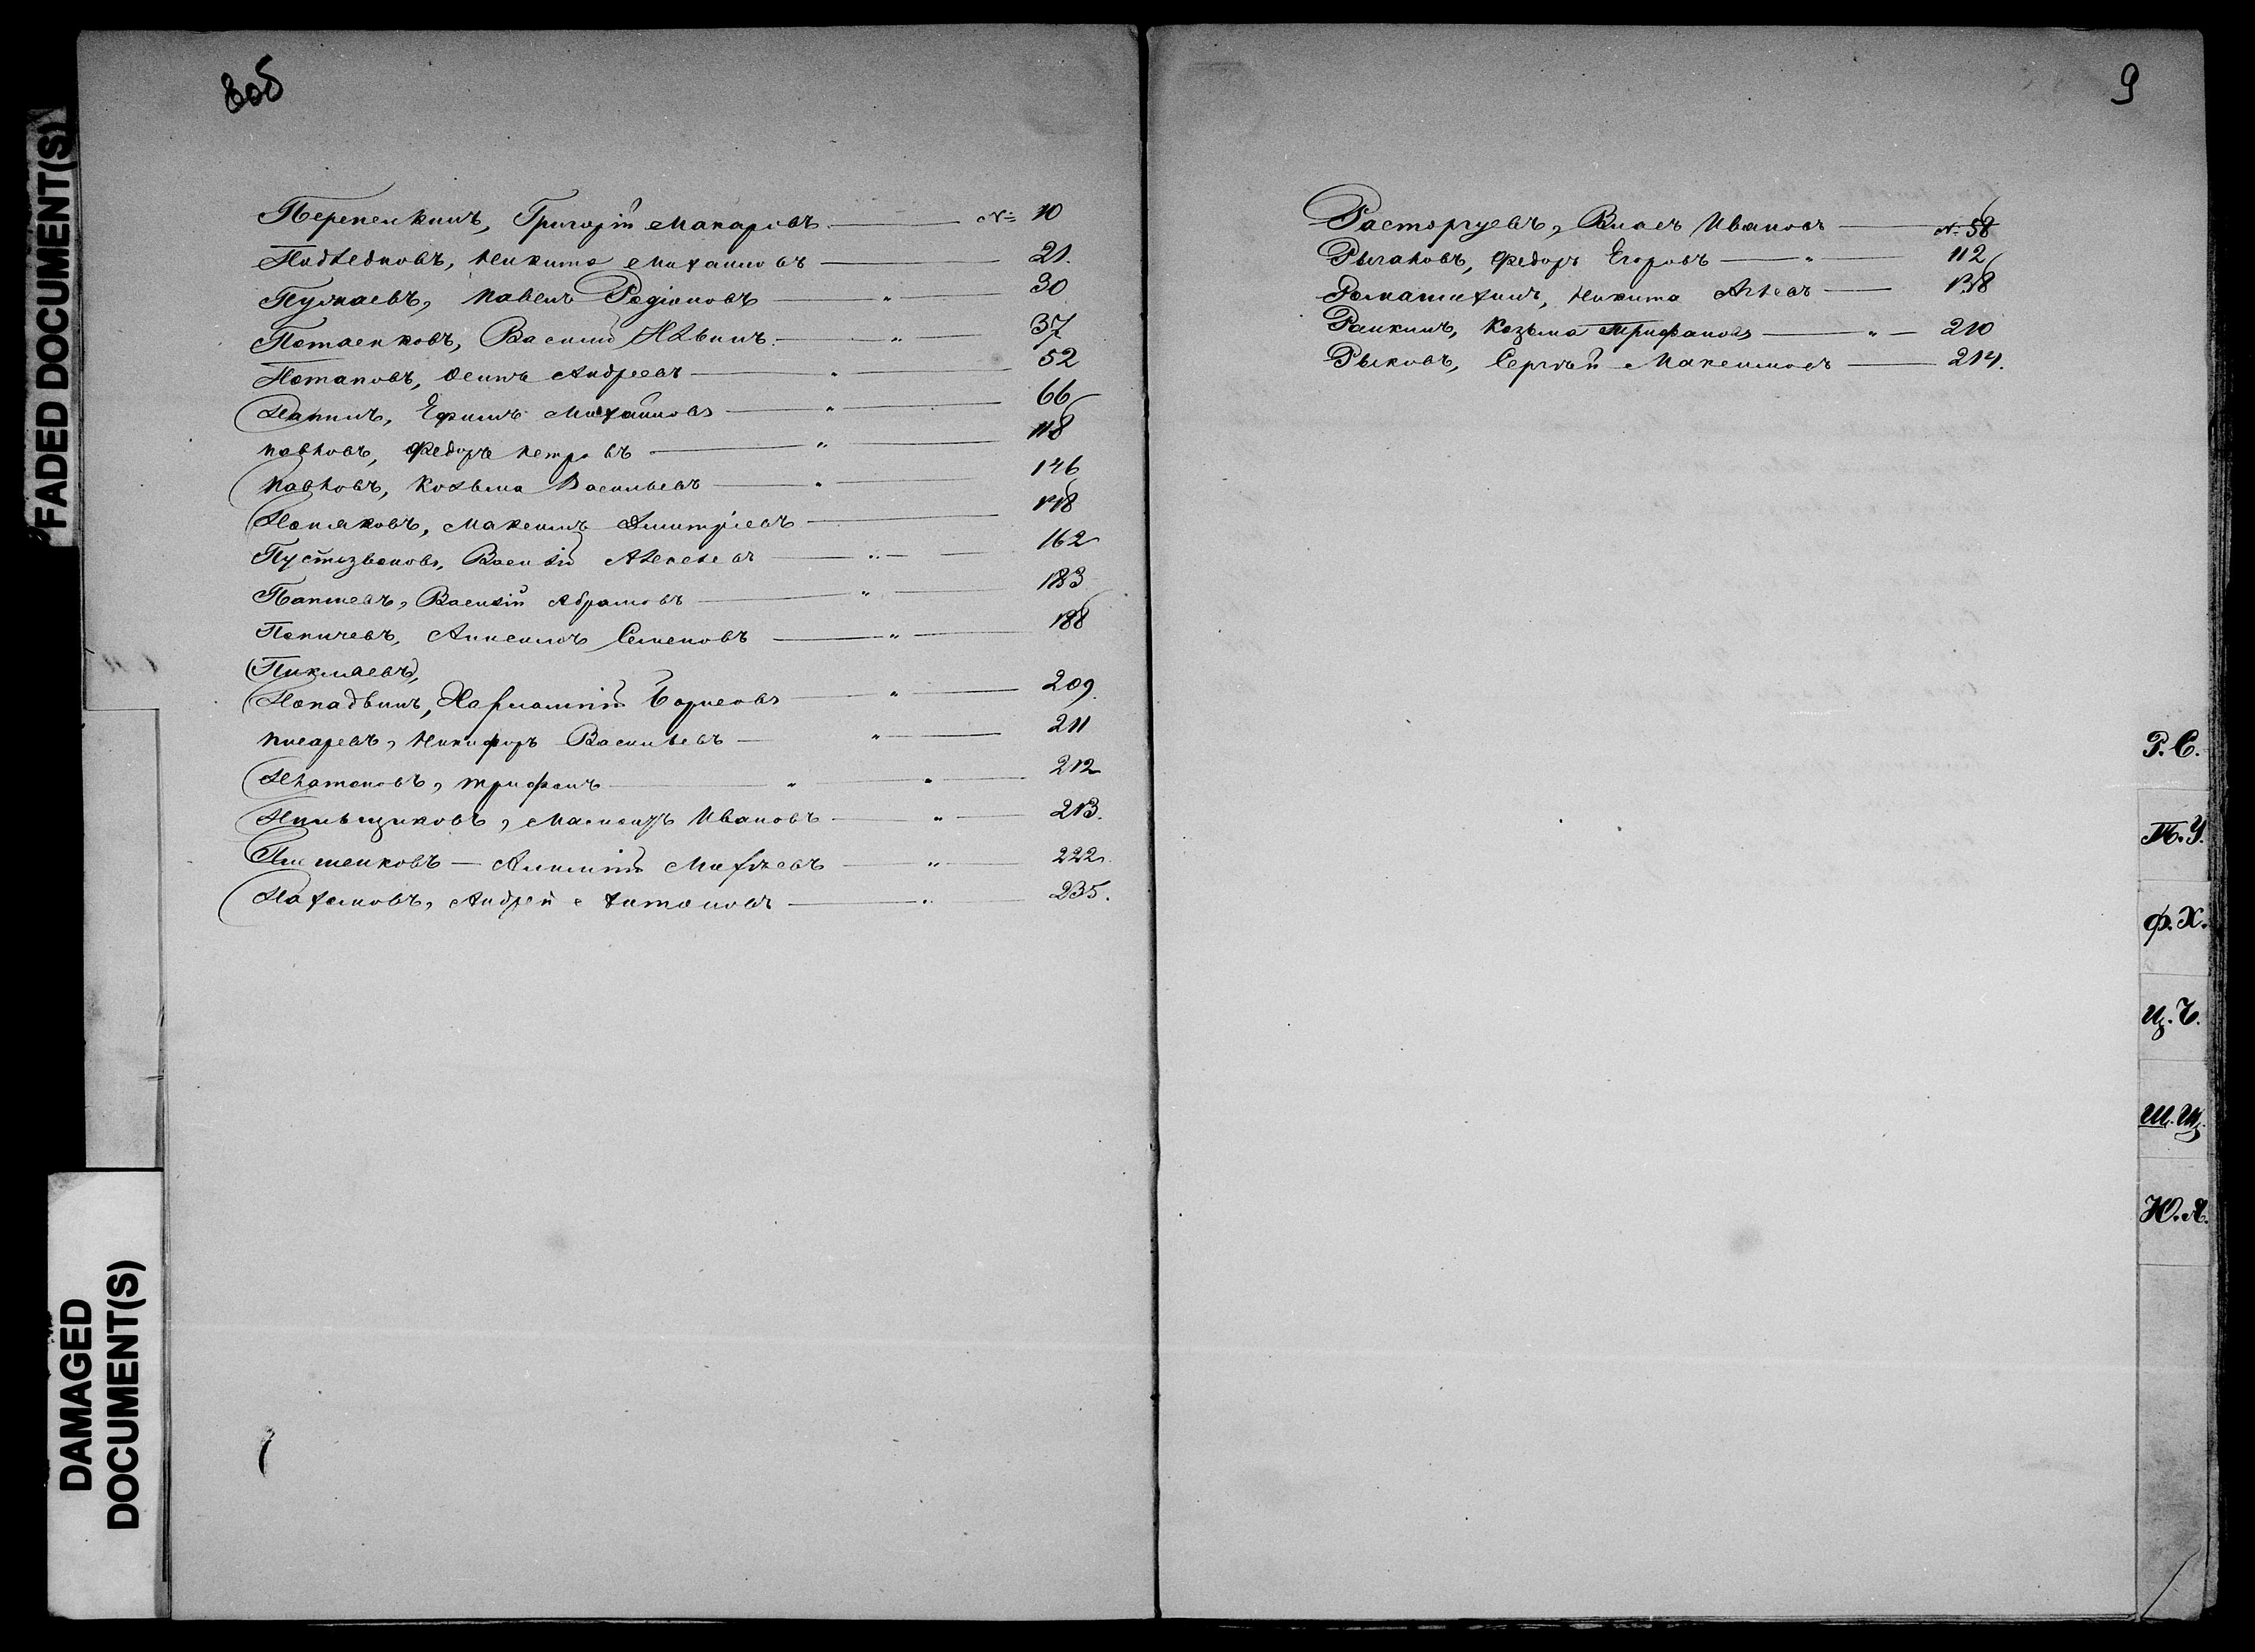 8об
Перепелкинъ, Григорій Макаровъ № 10
Подъедновъ, Никита Михайловъ 21.
Пулаевъ, Павелъ Родіоновъ " 30
Потаенковъ, Василій Ильинъ " 37
Потаповъ, Осипъ Андреевъ " 52
Папинъ, Ефимъ Михайловъ " 66
Павловъ, Федоръ Петровъ " 118
Павловъ, Козьма Васильевъ " 146
Поляковъ, Максимъ Дмитріевъ 148
Пустозвоновъ, Василій Алексеевъ " 162
Папшевъ, Василій Абрамовъ " 183
Попичевъ, Анисимъ Семеновъ " 188
(Пикмаевъ),
Попадьинъ, Харлампій Борисовъ " 209.
Писаревъ, Никифоръ Васильевъ " 211
Платоновъ, Трифонъ " " 212
Пильщиковъ, Иванъ " 213.
Писменковъ — Михѣевъ " 222.
Пахомовъ, Андрей Антоновъ " 235.
9
Расторгуевъ, Власъ Ивановъ №. 58
Рыгаловъ, Федоръ Егоровъ " 112
Ромашихинъ, Никита 138
Ранкинъ, Козьма Трифоновъ " 210
Рыковъ, Сергѣй Максимовъ 214.
Р. С.
Т. У.
Ф. Х.
Ц. Ч.
Ш. Щ.
Ю. Я.
FADED DOCUMENT(S)
DAMAGED
DOCUMENT(S)